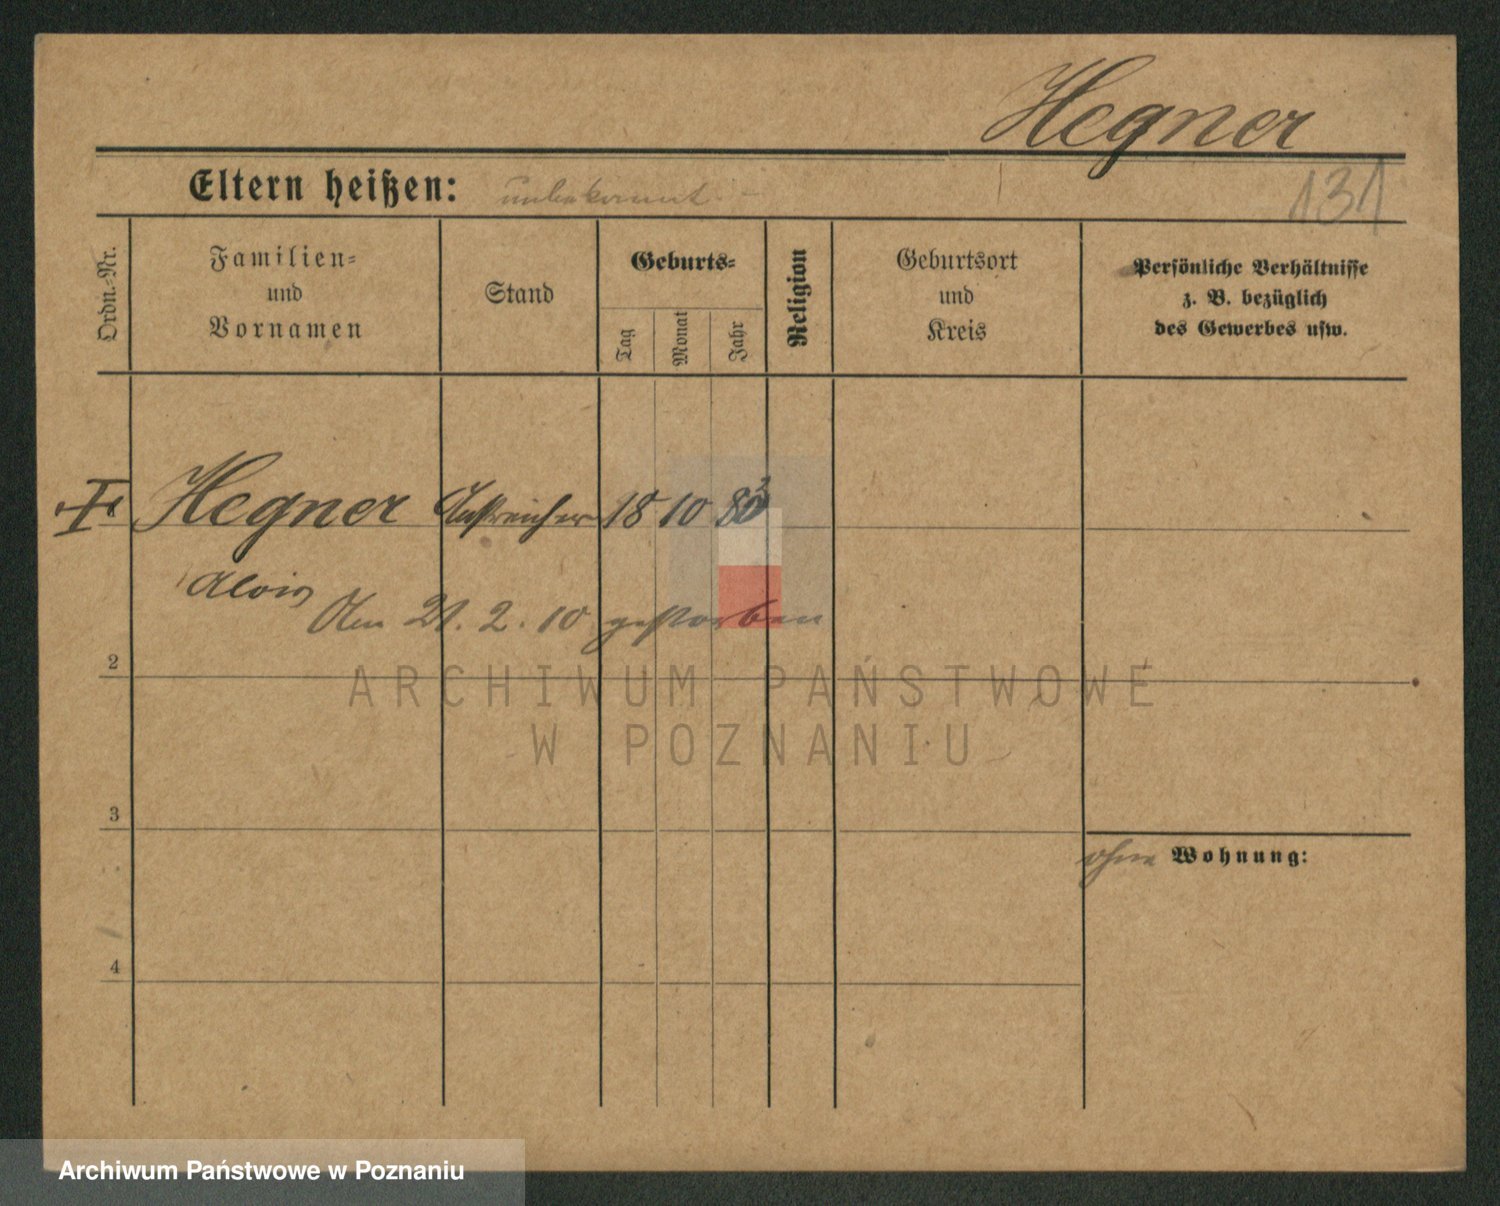 Hegner
Eltern heißen: unbekannt. -
131
Ordn.-Nr.
Familien-
und
Vornamen
Stand
Geburts-
Tag
Monat
Jahr
Religion
Geburtsort
und
Kreis
Persönliche Verhältnisse
z. B. bezüglich
des Gewerbes usw.
Hegner Anstreicher 18 10 80
Alois
Am 21. 2. 10 gestorben
2
3
4
ohne Wohnung:
ARCHIWUM PAŃSTWOWE
W POZNANIU
Archiwum Państwowe w Poznaniu